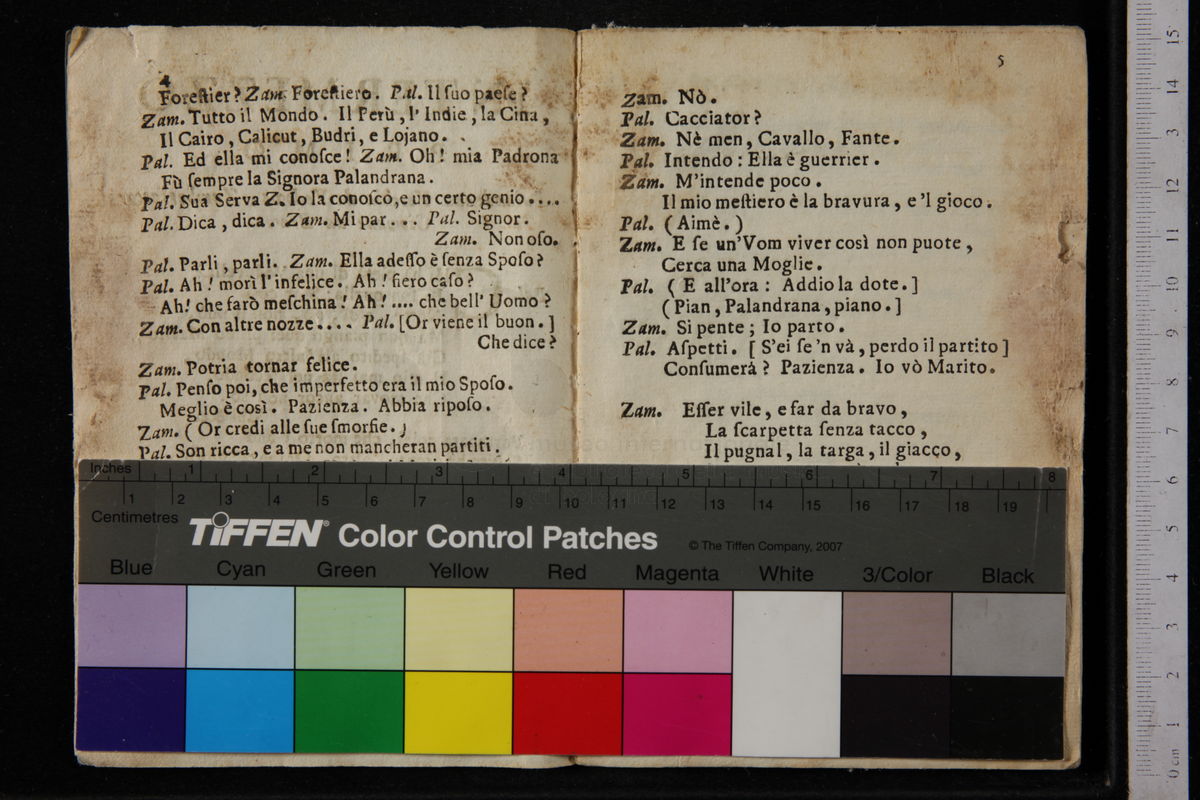 4
Foreſtier? Zam. Foreſtiero. Pal. Il ſuo paeſe?
Zam. Tutto il Mondo. Il Perù, l' Indie, la Cina,
Il Cairo, Calicut, Budri, e Lojano.
Pal. Ed ella mi conoſce! Zam. Oh! mia Padrona
Fù ſempre la Signora Palandrana.
Pal. Sua Serva Z. Io la conoſcò, e un certo genio....
Pal. Dica, dica. Zam. Mi par... Pal. Signor.
Zam. Non oſo.
Pal. Parli, parli. Zam. Ella adeſſo è ſenza Spoſo?
Pal. Ah! morì l'infelice. Ah! fiero caſo?
Ah! che farò meſchina! Ah!.... che bell' Uomo?
Zam. Con altre nozze.... Pal. [Or viene il buon.]
Che dice?
Zam. Potria tornar felice.
Pal. Penſo poi, che imperfetto era il mio Spoſo.
Meglio è così. Pazienza. Abbia ripoſo.
Zam. (Or credi alle ſue ſmorfie.)
Pal. Son ricca, e a me non mancheran partiti.
5
Zam. Nò.
Pal. Cacciator?
Zam. Nè men, Cavallo, Fante.
Pal. Intendo: Ella è guerrier.
Zam. M'intende poco.
Il mio meſtiero è la bravura, e 'l gioco.
Pal. (Aimè.)
Zam. E ſe un'Vom viver così non puote,
Cerca una Moglie.
Pal. (E all'ora: Addio la dote.]
(Pian, Palandrana, piano.]
Zam. Si pente; Io parto.
Pal. Aſpetti. [S'ei ſe 'n và, perdo il partito]
Conſumerà? Pazienza. Io vò Marito.
Zam. Eſſer vile, e far da bravo,
La ſcarpetta ſenza tacco,
Il pugnal, la targa, il giacco,
Inches 1 2 3 4 5 6 7 8
Centimetres 1 2 3 4 5 6 7 8 9 10 11 12 13 14 15 16 17 18 19
TIFFEN® Color Control Patches © The Tiffen Company, 2007
Blue Cyan Green Yellow Red Magenta White 3/Color Black
15
14
13
12
11
10
9
8
7
6
5
4
3
2
1
0 cm